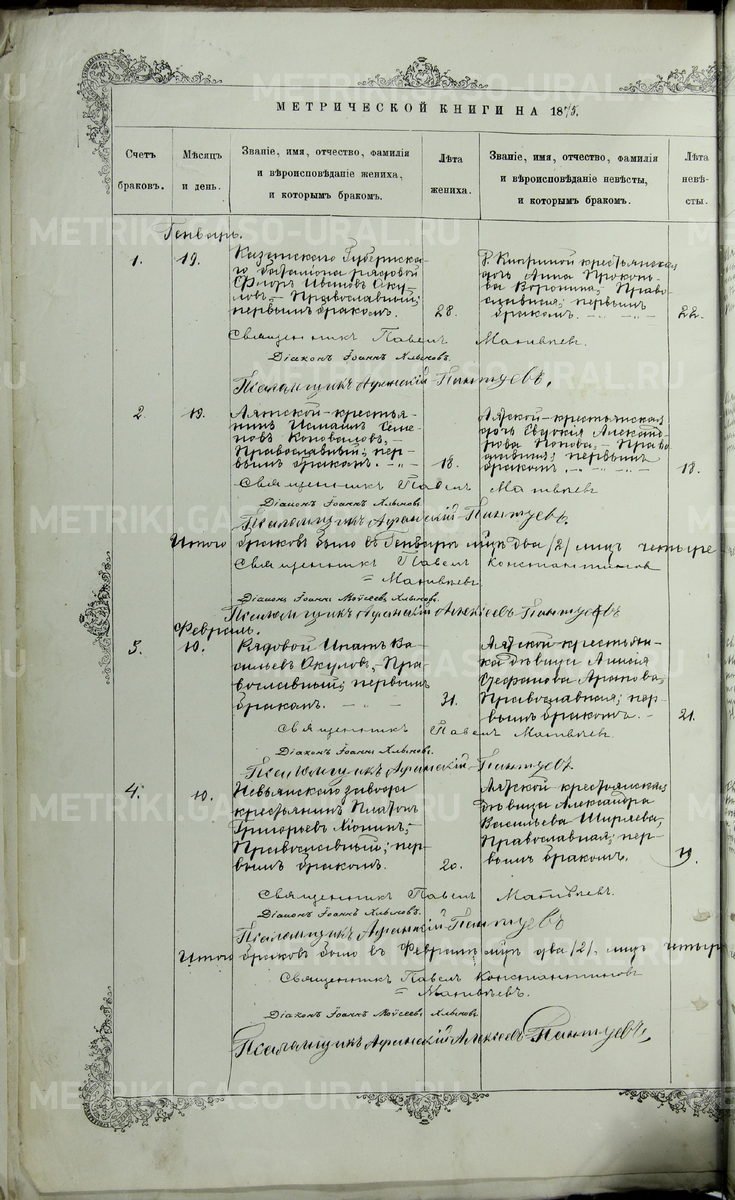 МЕТРИЧЕСКОЙ КНИГИ НА 1875.
Счетъ браковъ.
Мѣсяцъ и день.
Званіе, имя, отчество, фамилія и вѣроисповѣданіе жениха, и которымъ бракомъ.
Лѣта жениха.
Званіе, имя, отчество, фамилія и вѣроисповѣданіе невѣсты, и которымъ бракомъ.
Лѣта невѣ-сты.
Генварь.
1.
19.
Казанскаго Губернска-
го баталіона рядовой
Флоръ Ивановъ Оку-
ловъ, – Православный;
первымъ бракомъ.
28.
крестьянская
дочь Анна Прокопь-
ва Воронина; Право-
славная; первымъ
бракомъ.
22.
Священникъ Павелъ Матвѣевъ.
Діаконъ Іоаннъ Хлыновъ.
Псаломщикъ Пантуевъ.
2.
19.
крестья-
нинъ Семе-
новъ Коноваловъ, –
Православный; пер-
вымъ бракомъ.
18.
крестьянская
дочь Евдокія Александ-
рова Попова, – Право-
славная; первымъ
бракомъ.
18.
Священникъ Павелъ Матвѣевъ
Діаконъ Іоаннъ Хлыновъ.
Псаломщикъ Пантуевъ.
Итого браковъ было въ Генварѣ м-цѣ два /2/ лицъ четыре
Священникъ Павелъ Константиновъ
= Матвѣевъ.
Діаконъ Іоаннъ Моѵсеевъ Хлыновъ.
Псаломщикъ Алексѣевъ Пантуевъ
Февраль.
3.
10.
Рядовой Ипатъ Ва-
сильевъ Окуловъ, Пра-
вославный; первымъ
бракомъ.
31.
крестьян-
ка дѣвица
Стефанова
Православная; пер-
вымъ бракомъ. –
21.
Священникъ Павелъ Матвѣевъ.
Діаконъ Іоаннъ Хлыновъ.
Псаломщикъ Пантуевъ
4.
10.
Невьянскаго завода
крестьянинъ Платонъ
Григорьевъ
Православный; пер-
вымъ бракомъ.
20.
крестьянская
дѣвица Александра
Васильева Ширяева,
Православная; пер-
вымъ бракомъ.
19.
Священникъ Павелъ Матвѣевъ.
Діаконъ Іоаннъ Хлыновъ.
Псаломщикъ Пантуевъ
Итого браковъ было въ Февралѣ м-цѣ два /2/, лицъ четыре
Священникъ Павелъ Константиновъ
= Матвѣевъ.
Діаконъ Іоаннъ Моѵсеевъ Хлыновъ
Псаломщикъ Алексѣевъ Пантуевъ.
METRIKI.GASO-URAL.RU